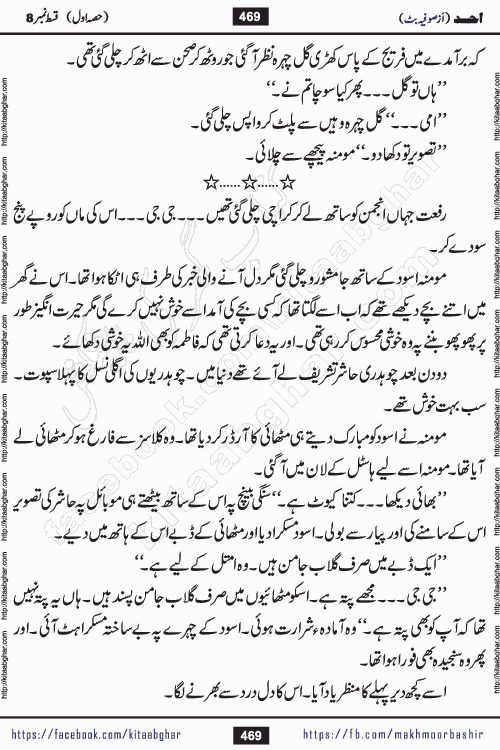 احد (از صوفیہ بٹ) 469 (حصہ اول) قسط نمبر 8
کہ برآمدے میں فریج کے پاس کھڑی گل چہرہ نظر آگئی جو روٹھ کر صحن سے اٹھ کر چلی گئی تھی۔
”ہاں تو گل ۔۔۔ پھر کیا سوچا تم نے۔“
”امی ۔۔۔“ گل چہرہ وہیں سے پلٹ کر واپس چلی گئی۔
”تصویر تو دکھا دو۔“ مومنہ پیچھے سے چلائی۔
☆......☆......☆
رفعت جہاں انجمن کو ساتھ لے کر کراچی چلی گئی تھیں ۔۔۔ جی جی ۔۔۔ اس کی ماں کو روپے پنج
سو دے کر۔
مومنہ اسود کے ساتھ جامشورو چلی گئی مگر دل آنے والی خبر کی طرف ہی اٹکا ہوا تھا۔ اس نے گھر
میں اتنے بچے دیکھے تھے کہ اب اسے لگتا تھا کہ کسی بچے کی آمد اسے خوش نہیں کرے گی مگر حیرت انگیز طور
پر پھوپھو بننے پہ وہ خوشی محسوس کر رہی تھی۔ اور یہ دعا کرتی تھی کہ فاطمہ کو بھی اللہ یہ خوشی دکھائے۔
دو دن بعد چوہدری حاشر تشریف لے آئے تھے دنیا میں۔ چوہدریوں کی اگلی نسل کا پہلا سپوت۔
سب بہت خوش تھے۔
مومنہ نے اسود کو مبارک دیتے ہی مٹھائی کا آرڈر کر دیا تھا۔ وہ کلاسز سے فارغ ہو کر مٹھائی لے
آیا تھا۔ مومنہ اسے لیے ہاسٹل کے لان میں آگئی۔
”بھائی دیکھا ۔۔۔ کتنا کیوٹ ہے۔“ سنگی بینچ پہ اس کے ساتھ بیٹھتے ہی موبائل پہ حاشر کی تصویر
اس کے سامنے کی اور پیار سے بولی۔ اسود مسکرا دیا اور مٹھائی کے ڈبے اس کے ہاتھ میں دیے۔
”ایک ڈبے میں صرف گلاب جامن ہیں۔ وہ امتل کے لیے ہے۔“
”جی جی ۔۔۔ مجھے پتہ ہے۔ اسکو مٹھائیوں میں صرف گلاب جامن پسند ہیں۔ ہاں یہ پتہ نہیں
تھا کہ آپ کو بھی پتہ ہے۔“ وہ آمادہء شرارت ہوئی۔ اسود کے چہرے پہ بے ساختہ مسکراہٹ آئی۔ اور
پھر وہ سنجیدہ بھی فوراً ہوا تھا۔
اسے کچھ دیر پہلے کا منظر یاد آیا۔ اس کا دل درد سے بھرنے لگا۔
https://facebook.com/kitaabghar 469 https://fb.com/makhmoorbashir
http://kitaabghar.com